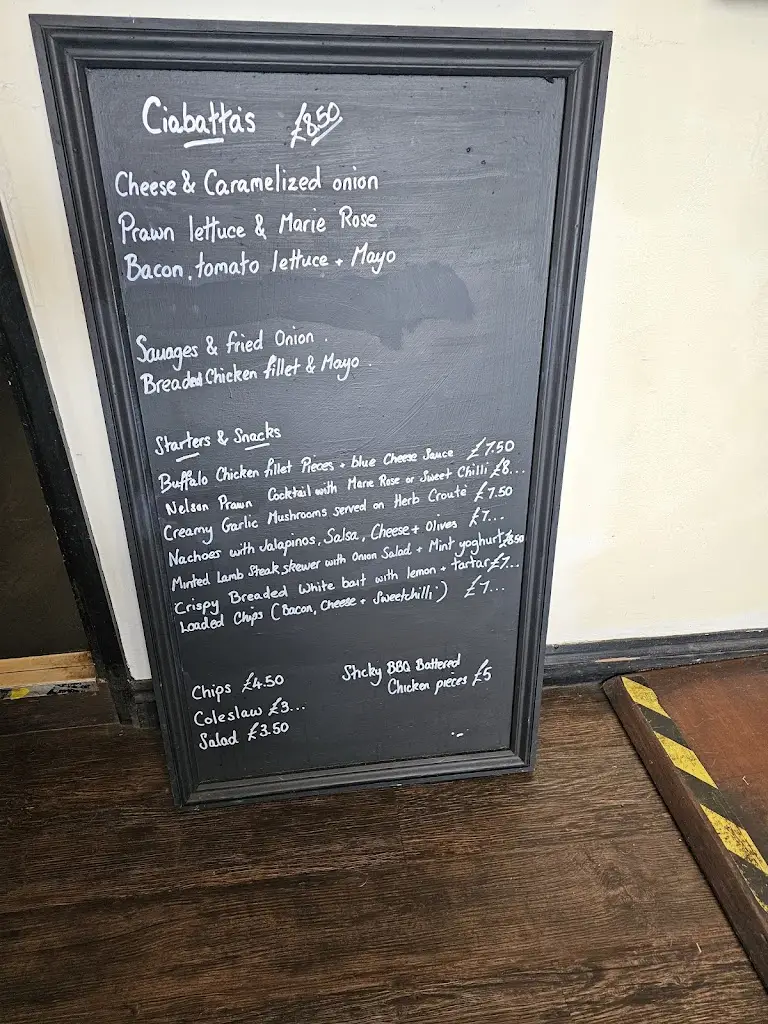 Ciabatta's £8.50
Cheese & Caramelized onion
Prawn lettuce & Marie Rose
Bacon, tomato lettuce + Mayo
Sausages & fried Onion.
Breaded Chicken fillet & Mayo.
Starters & Snacks
Buffalo Chicken fillet Pieces + blue Cheese Sauce £7.50
Nelson Prawn Cocktail with Marie Rose or Sweet Chilli £8...
Creamy Garlic Mushrooms served on Herb Croute £7.50
Nachoes with Jalapinos, Salsa, Cheese + Olives £7...
Minted Lamb Steak skewer with Onion Salad + Mint yoghurt £8.50
Crispy Breaded White bait with lemon + tartar £7...
Loaded Chips (Bacon, Cheese + Sweetchilli) £7...
Chips £4.50
Coleslaw £3...
Salad £3.50
Sticky BBQ Battered
Chicken pieces £5